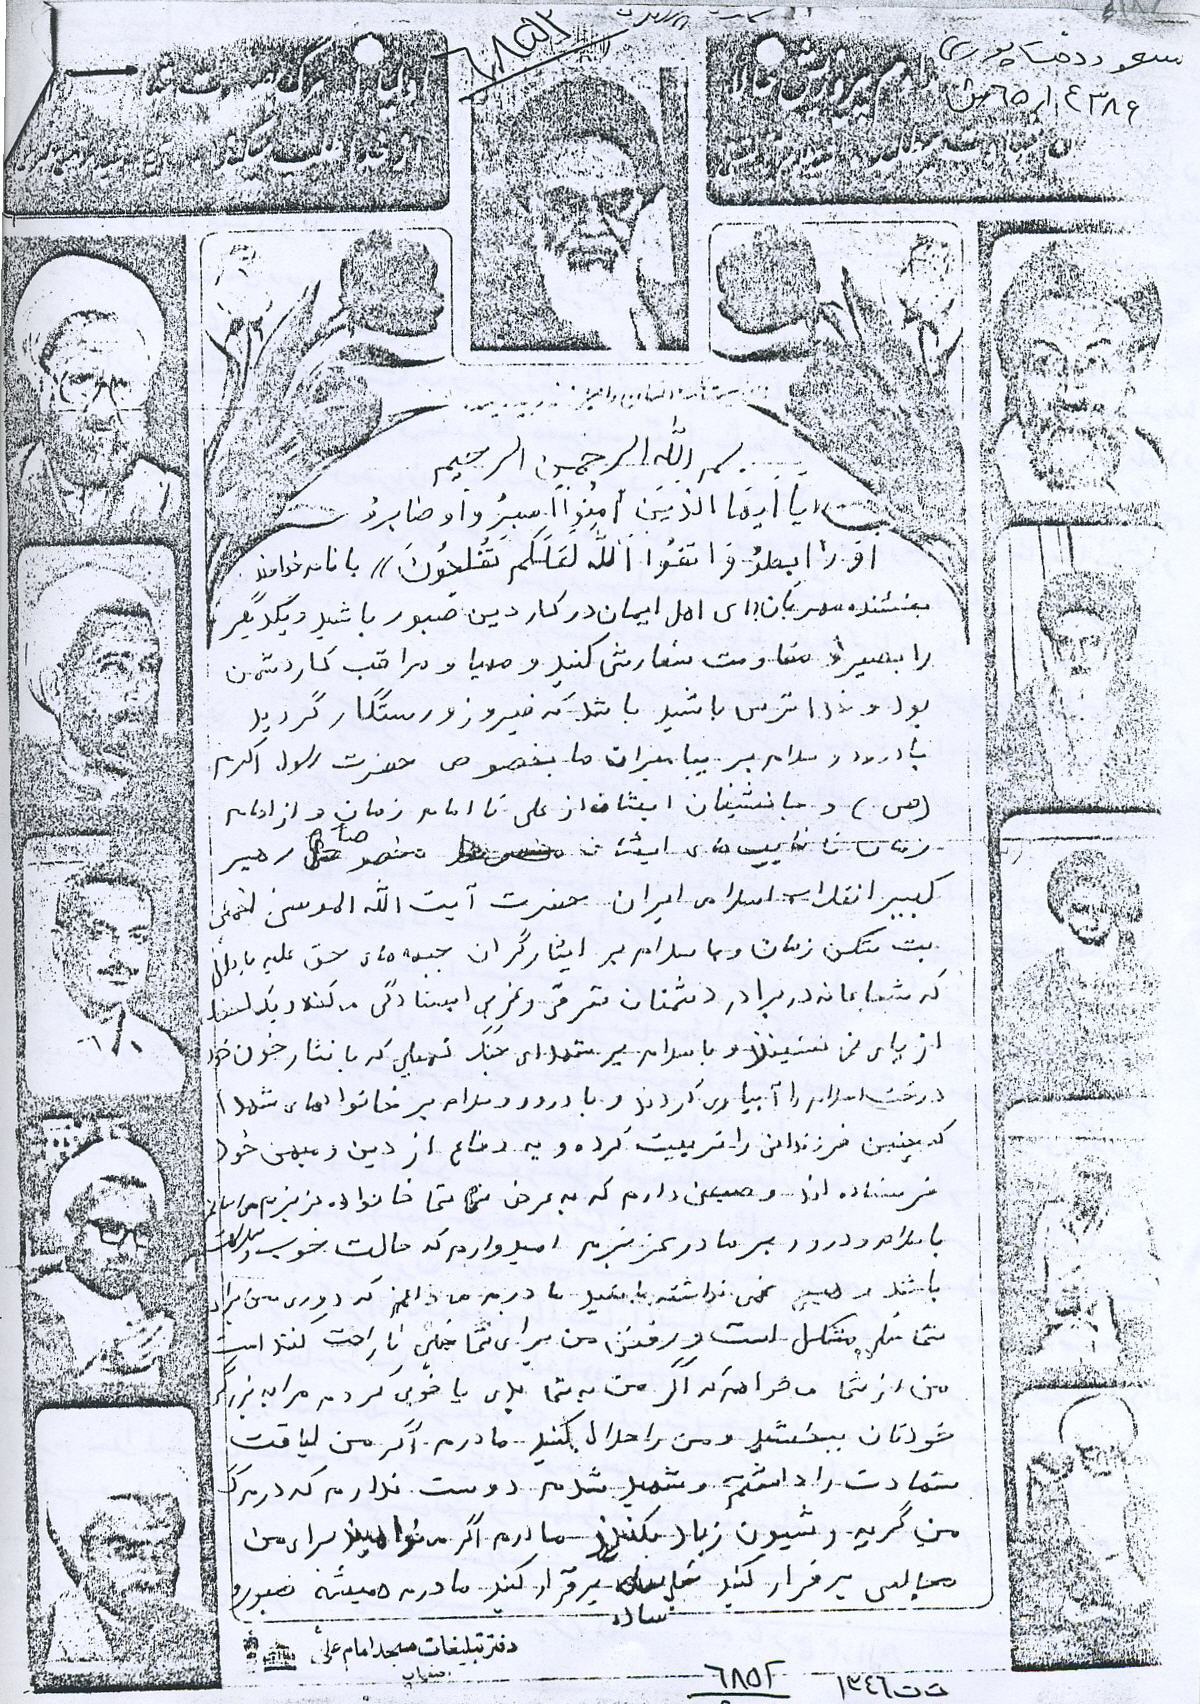 ۶۸۵۲
مسعود دخت پوری
بسم الله الرحمن الرحیم
«یا ایها الذین امنوا اصبروا و صابرو
او را بطو و اتقوا الله لعلکم تفلحون» با نام خداوند
بخشنده مهربان «ای اهل ایمان در کار دین صبور باشید و یکدیگر
را بصبر و مقاومت سفارش کنید و مهیا و مراقب کار دشمن
بود و خدا ترس باشید باشد که فیروز و رستگار گردید
با درود و سلام بر پیامبران ما بخصوص حضرت رسول اکرم
(ص) و جانشینان ایشان از علی تا امام زمان و از امام
زمان تا نایب های ایشان مخصوصا رهبر
کبیر انقلاب اسلامی ایران حضرت آیت الله الموسی الخمینی
بت شکن زمان و با سلام بر ایثارگران جبهه های حق علیه باطل
که شجاعانه در برابر دشمنان شرقی و غربی ایستادگی می کنند و یک لحظه
از پای نمی نشینند و با سلام بر شهدای جنگ تحمیلی که با نثار خون خود
درخت اسلام را آبیاری کردند و با درود و سلام بر خانوادهای شهدا
که چنین فرزندانی را تربیت کرده و به دفاع از دین و میهن خود
فرستاده اند وصیتی دارم که به عرض شما خانواده عزیزم می رسانم
با سلام و درود بر مادر عزیزم امیدوارم که حالت خوب و سلامت
باشد و هیچ غمی نداشته باشید مادرم می دانم که دوری من برای
شما مشکل است و رفتن من برای شما خیلی ناراحت کننده است
من از شما می خواهم که اگر من به شما بدی یا خوبی کردم مرا به بزرگی
خودتان ببخشید و من را حلال کنید مادرم اگر من لیاقت
شهادت را داشتم و شهید شدم دوست ندارم که در مرگ
من گریه و شیون زیاد بکنید مادرم اگر می خواهید برای من
مجالسی برقرار کنید ساده برقرار کنید مادرم همیشه صبور و
دفتر تبلیغات مسجد امام علی
اصفهان
۶۸۵۲
ت ت ۱۳۴۶